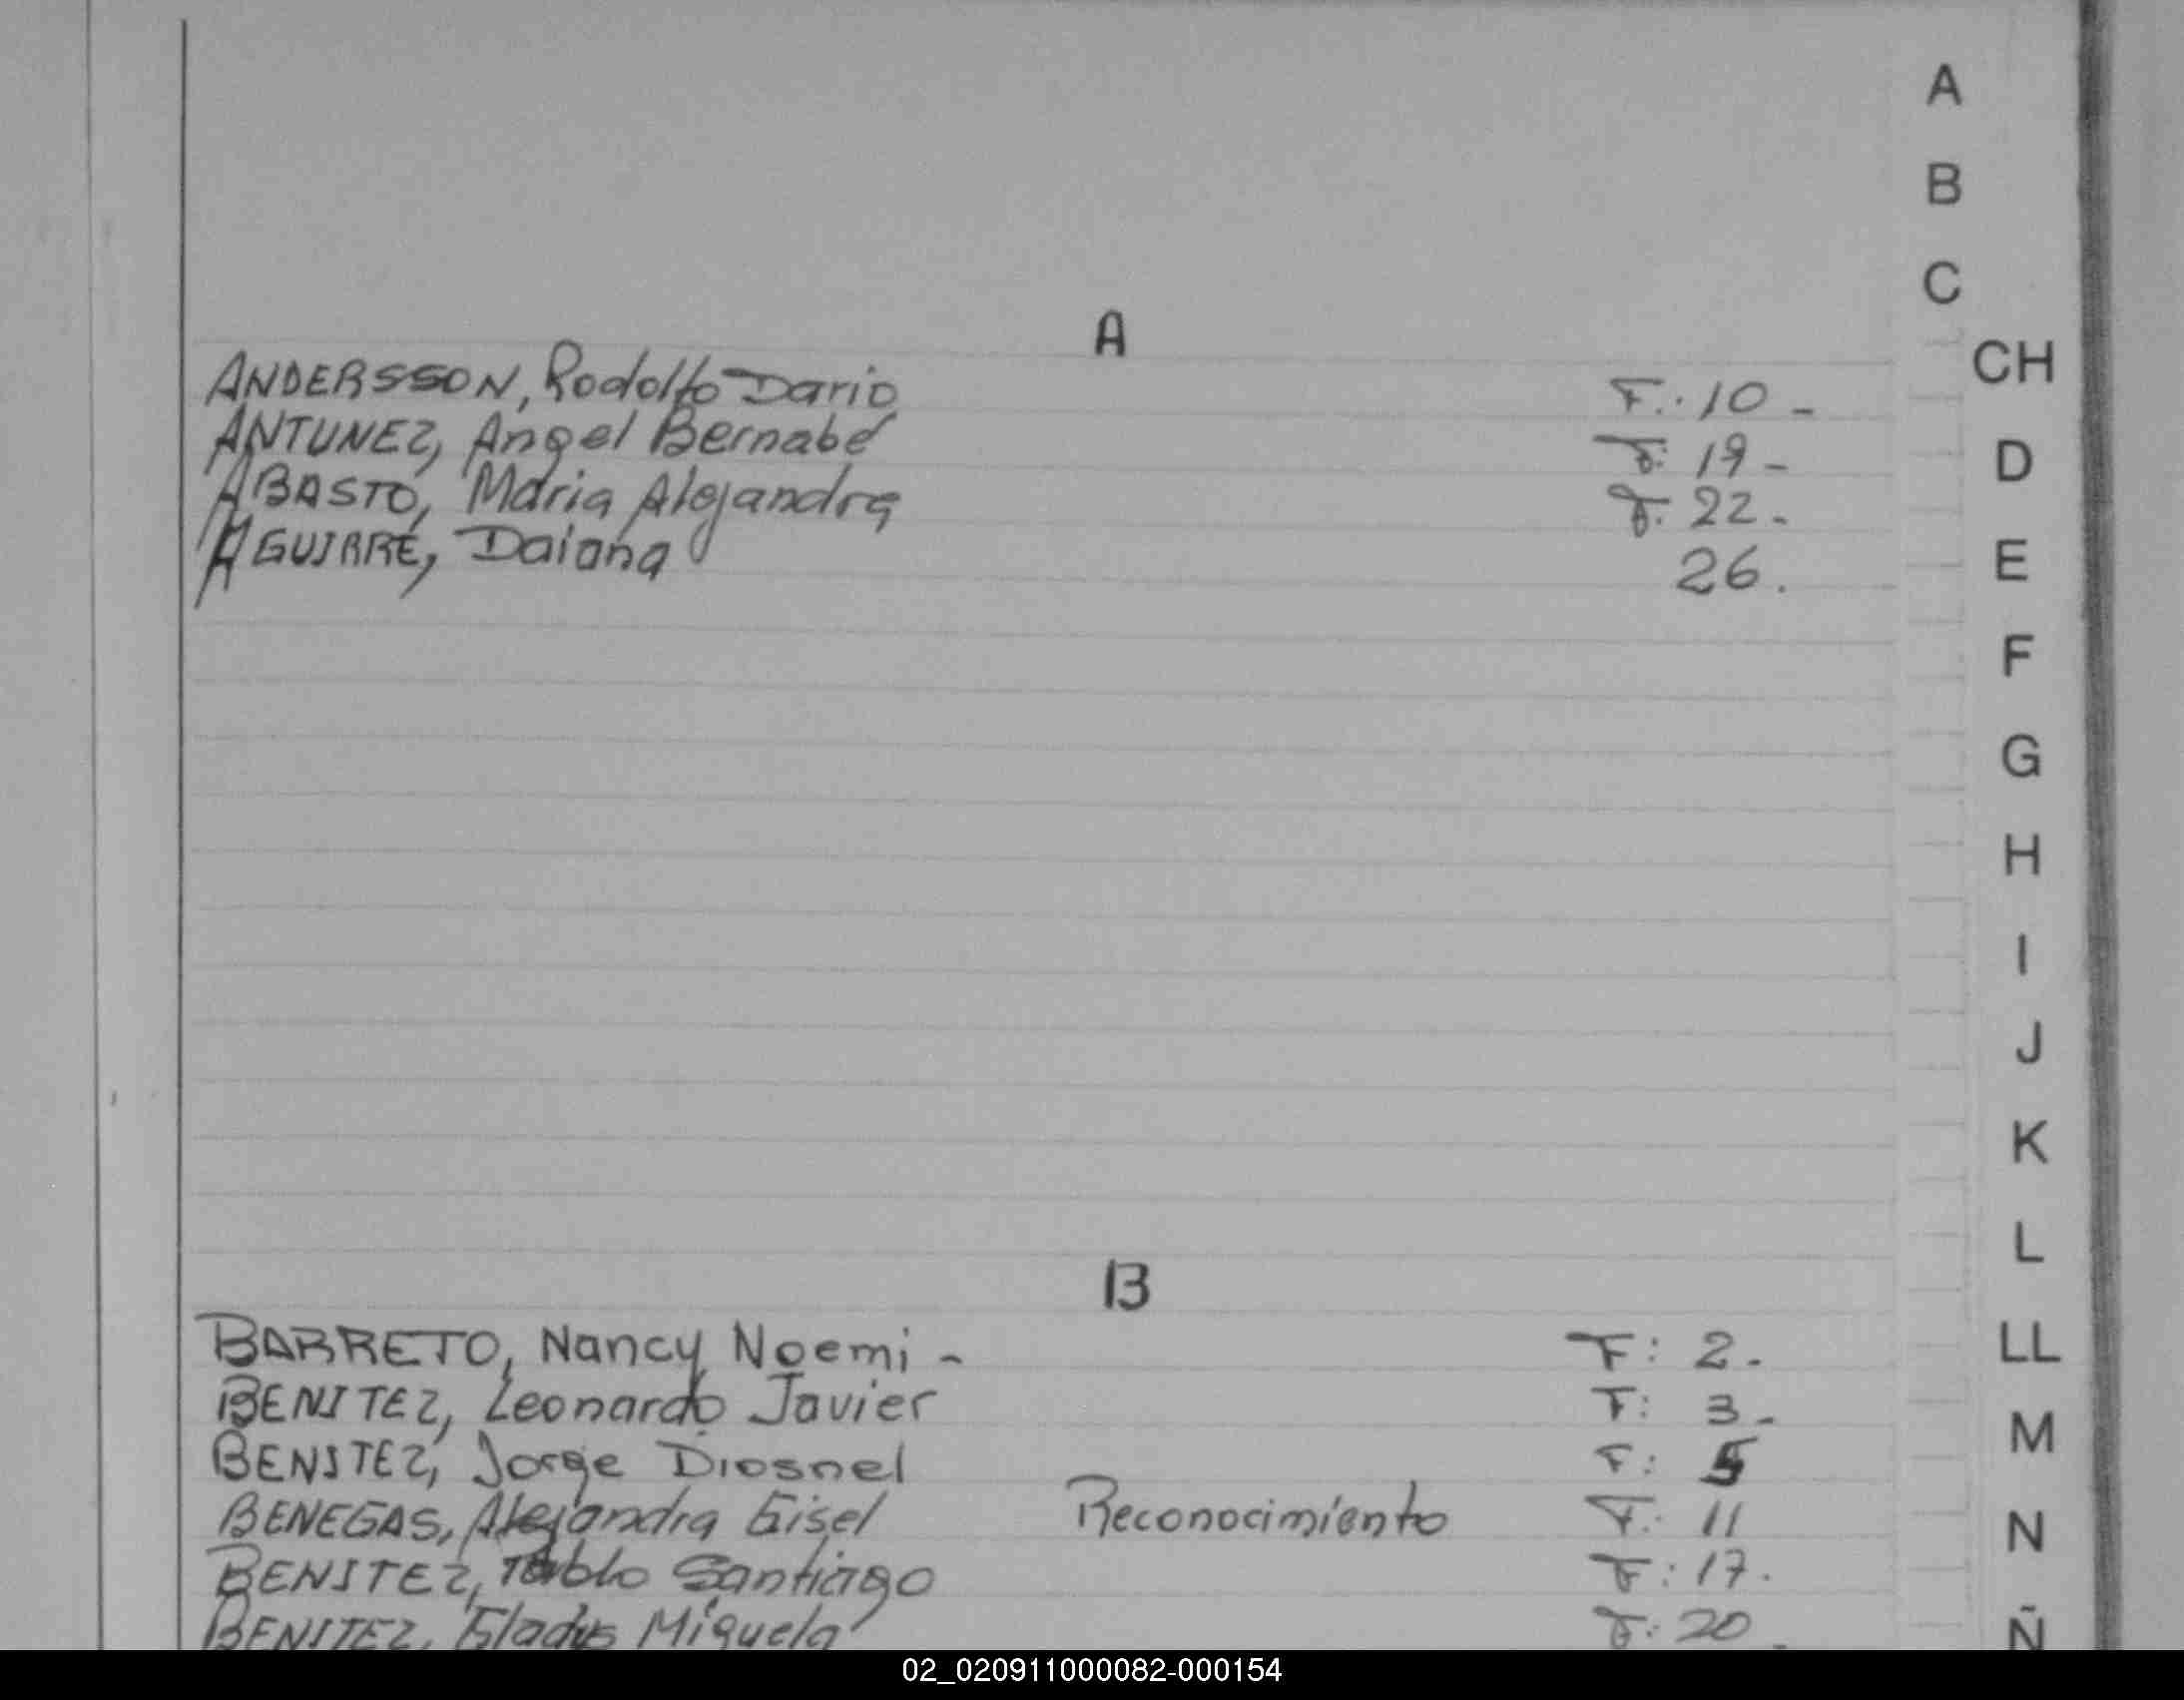 A
B
C
A
CH
ANDERSSON, Rodolfo Dario F.: 10 -
D
ANTUNEZ, Angel Bernabé F: 19 -
ABASTO, Maria Alejandra F. 22.
E
AGUIRRE, Daiana 26.
F
G
H
I
J
K
L
B
LL
BARRETO, Nancy Noemi - F: 2.
M
BENITEZ, Leonardo Javier F: 3.
BENITEZ, Jorge Diosnel F: 5
N
BENEGAS, Alejandra Gisel Reconocimiento F: 11
BENITEZ, Pablo Santiago F: 17.
Ñ
BENITEZ, Gladys Miguela F: 20
02_020911000082-000154